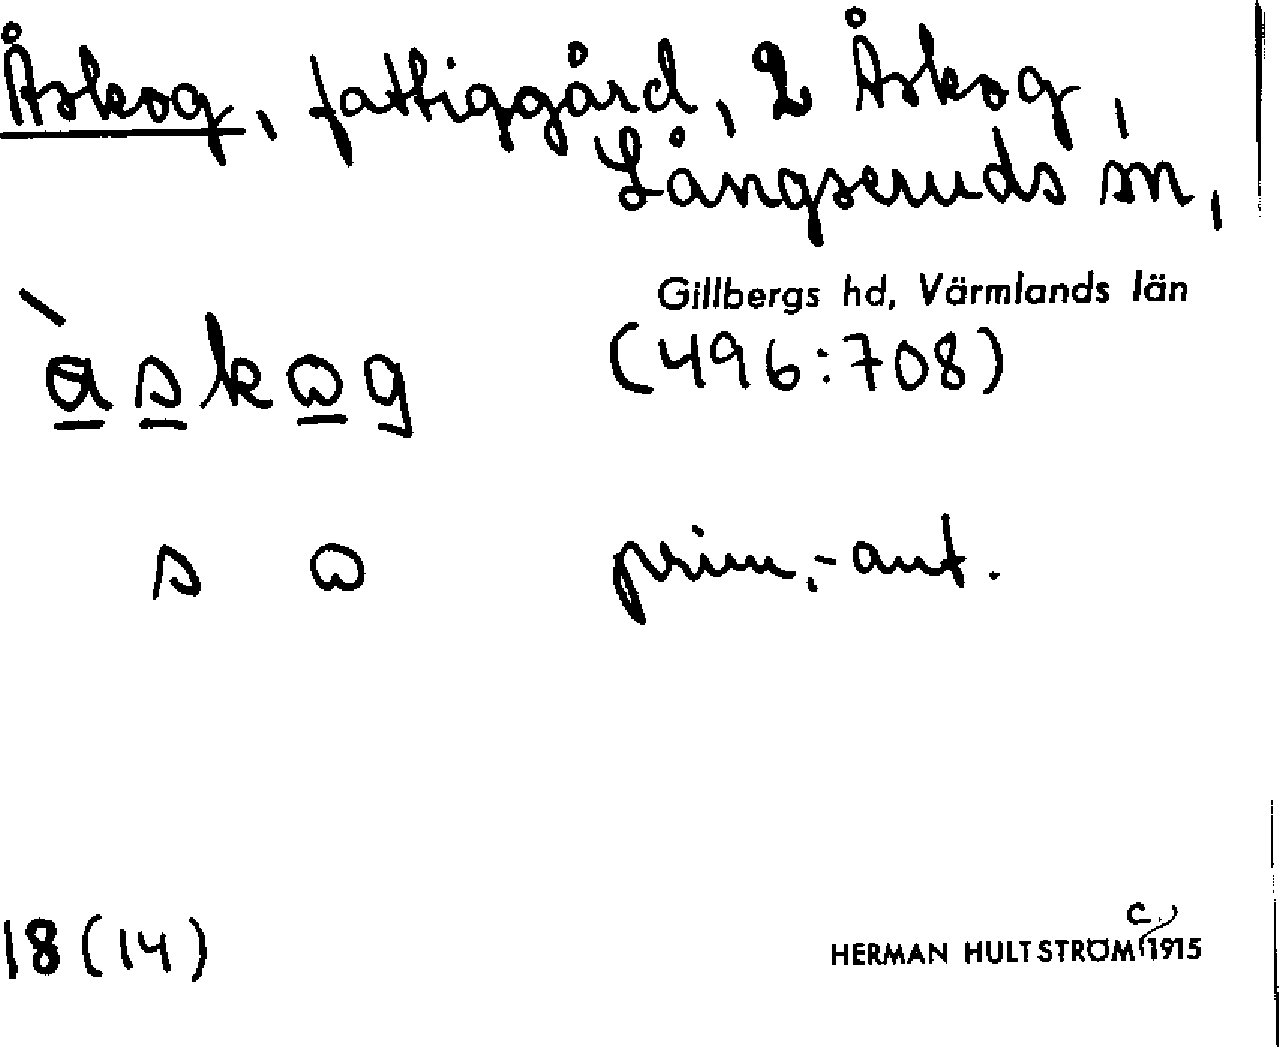 Åskog, fattiggård, 2 Åskog,
Långseruds sn,
Gillbergs hd, Värmlands län
àskωg (496:708)
s ω prim.-ant.
18 (14)
HERMAN HULTSTRÖM c. 1915